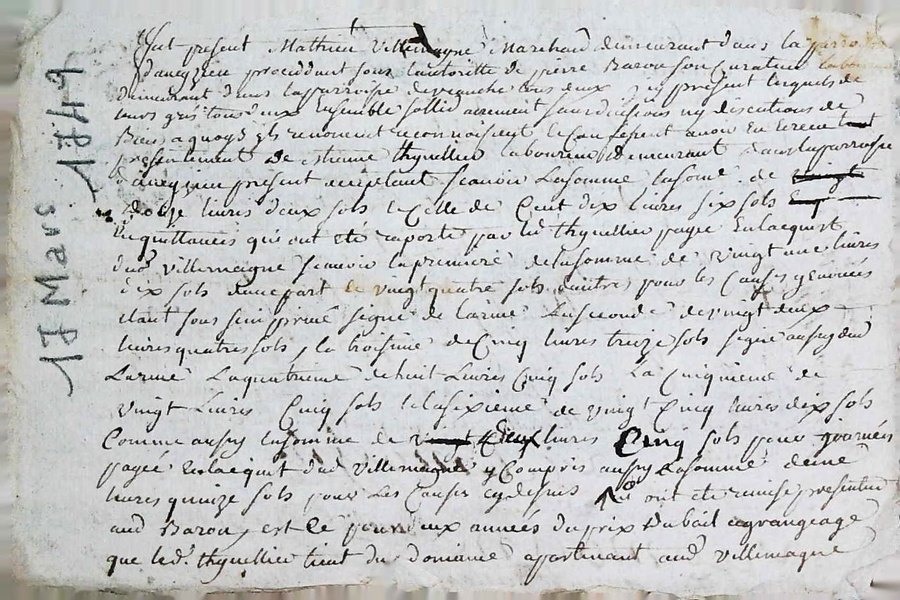 17 Mars 1749
fut present Mathieu Villemagne Marchand demeurant dans la parroisse
procedant sous lautoritte de pierre Baron son Curateur
demeurant dans la parroisse de tous deux present lesquels de
leurs gres tous deux Ensemble sollidairement sans division ny discutions de
Biens a quoy ils renoncent reconnoissent et Confessent avoir Eu et receu
presentement de etienne thyuellier laboureur demeurant dans la parroisse
present acceptant scavoir La somme de
livres deux sols et Celle de Cent dix livres six sols
En quittances qui ont eté raporté par led thyuellier payée En lacquist
dud Villemagne scavoir la premiere de la somme de vingt une livres
dix sols dune part et vingt quatre sols dautre pour les Causes y enoncés
etant sous sein privé signé de Larme La seconde de vingt deux
livres quatre sols, la troisime de Cinq livres treize sols signé aussy dud
Larme La quatrieme de huit Livres Cinq sols La Cinquieme de
vingt Livres Cinq sols et la sixieme de vingt Cinq livres dix sols
Comme aussy La somme de deux livres Cinq sols pour journées
payée En lacquit dud Villemagne y Compris aussy La somme dune
livres quinze sols pour Les Causes Cy dessus qui ont eté remise presentement
aud Baron, est Ce pour deux années du prix du bail a grangeage
que led. thyuellier tient du domaine apartenant aud Villemagne